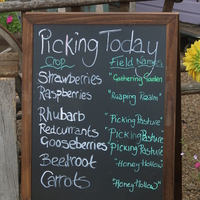 Picking Today
Crop Field Name
Strawberries "Gathering Garden"
Raspberries "Rasping Realm"
Rhubarb "Picking Pasture"
Redcurrants "Picking Pasture"
Gooseberries "Picking Pasture"
Beetroot "Honey Hollow"
Carrots "Honey Hollow"